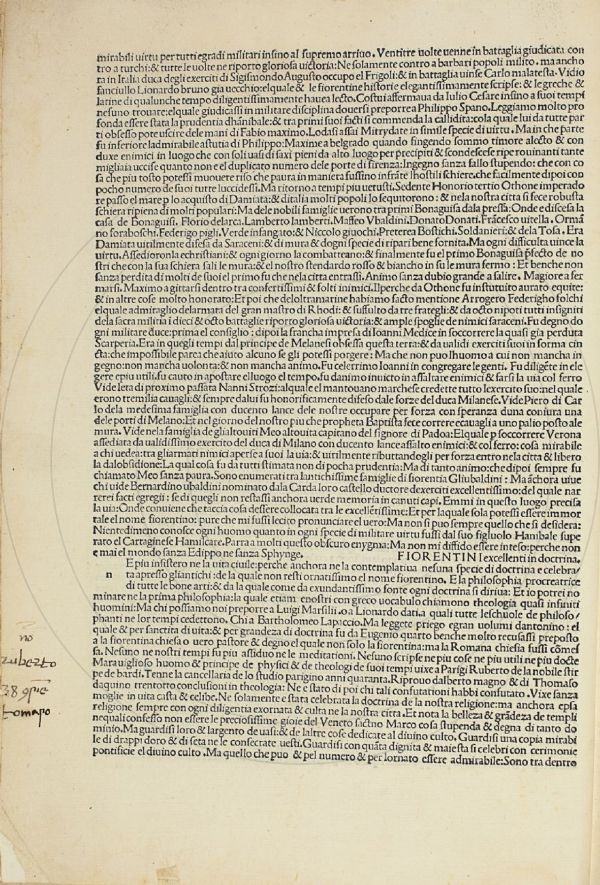 mirabili uirtu per tutti egradi militari insino al supremo arriuo. Ventitre uolte uenne in battaglia giudicata con
tro a turchi: & tutte le uolte ne riporto gloriosa uictoria: Ne solamente contro a barbari popoli milito. ma ancho
ra in Italia duca degli exerciti di Sigismondo Augusto occupo el Frigoli: & in battaglia uinse Carlo malatesta. Vidio
fanciullo Lionardo bruno gia uecchio: elquale & le fiorentine historie elegantissimamente scripse: & le greche &
latine di qualunche tempo diligentissimamente hauea lecto. Costui affermaua da Iulio Cesare insino a suoi tempi
nessuno trouare: elquale giudicassi in militare disciplina douersi preporre a Philippo Spano. Leggiamo molto pro
fonda essere stata la prudentia dhanibale: & tra primi suoi facti si commenda la callidita: cola quale lui da tutte par
ti obsesso pote uscire dele mani di Fabio maximo. Lodasi assai Mitrydate in simile specie di uirtu. Ma in che parte
fu inferiore ladmirabile astutia di Philippo: Maxime a belgrado quando fingendo sommo timore alecto & con
duxe enimici in luogo che con soli uasi di saxi pieni da alto luogo per precipiti & scondescese ripe rouinanti tante
migliaia uccise quanto non e el duplicato numero dele porte di firenza: Ingegno sanza fallo stupendo: che con co
sa che piu tosto potessi muouere riso che paura in maniera fussino infrante lhostili schiere, che facilmente dipoi con
pocho numero de suoi tutte luccidessi. Ma ritorno a tempi piu uetusti. Sedente Honorio tertio Othone imperado
re passo el mare p lo aquisto di Damiata: & ditalia molti popoli lo sequitorono: & nela nostra citta si fece robusta
schiera ripiena di molti popolari: Ma dele nobili famiglie uerono tra primi Bonaguisa dala pressa. Onde e discesa la
casa de Bonaguisi. Florio delarca. Lamberto lamberti. Maffeo Vbaldini. Donato Donati. Frácesco uitella. Ormá
no foraboschi. Federigo pigli. Verde infangato: & Niccolo giuochi. Preterea Bostichi. Soldanieri: & dela Tosa. Era
Damiata uirilmente difesa da Saraceni: & di mura & dogni specie di ripari bene fornita. Ma ogni difficulta uince la
uirtu. Assedioronla echristiani: & ogni giorno la combatteano: & finalmente fu el primo Bonaguisa pfecto de no
stri che con la sua schiera sali le mura: & el nostro stendardo rosso & biancho in su le mura fermo: Et benche non
sanza perdita di molti de suoi el primo fu che nela citta entrassi. Animo sanza dubio grande a salire. Magiore a fer
marsi. Maximo a gittarsi dentro tra confertissimi & folti inimici. Ilperche da Othone fu instituito aurato equite:
& in altre cose molto honorato: Et poi che deloltramarine habiamo facto mentione Arrogero Federigho folchi
el quale admiraglio delarmata del gran mastro di Rhodi: & sussulto da tre frategli: & da octo nipoti tutti insigniti
dela sacra militia i dieci & octo battaglie riporto gloriosa uictoria: & ample spoglie de nimici saraceni. Fu degno do
gni militare duce: prima el consiglio: dipoi la francha impresa di Ioanni. Medice in soccorrere la quasi gia perduta
Scarperia. Era in quegli tempi dal principe de Melanesi obsessa questa terra: & da ualidi exerciti suoi in forma cin
cta: che impossibile parea che aiuto alcuno se gli potessi porgere: Ma che non puo lhuomo a cui non mancha in
gegno: non mancha uolonta: & non mancha animo. Fu celerrimo Ioanni in congregare le genti. Fu diligéte in ele
gere epiu utili. fu cauto in apostare elluogo el tempo. fu danimo inuicto in assaltare enimici & farsi la uia col ferro
Vide leta di proximo passata Nanni Strozi: alquale el mantoano marchese credette tutto lexercito suo: nel quale
erono tremilia cauagli: & sempre dalui fu honorificamente difeso dale forze del duca Milanese. Vide Piero di Car
lo dela medesima famiglia con ducento lance dele nostre occupare per forza con speranza duna coniura una
dele porti di Melano: Et nel giorno del nostro piu che propheta Baptista fece correre ecauagli a uno palio posto ale
mura. Vide nela famiglia degli altouiti Meo altouita capitano del signore di Padoa: Elquale p soccorrere Verona
assediata da ualidissimo exercito del duca di Milano con ducento lance assalto enimici: & col ferro: cosa mirabile
a chi uedea: tra gliarmati nimici aperse a suoi la uia: & uirilmente ributtandogli per forza entro nela citta & libero
la dalobsidione: La qual cosa fu da tutti stimata non di pocha prudentia: Ma di tanto animo: che dipoi sempre fu
chiamato Meo sanza paura. Sono enumerati tra lantichissime famiglie di fiorentia Gliubaldini: Ma áchora uiue
chi uide Bernardino ubaldini nominato dala Carda loro castello ductore dexerciti excellentissimo: del quale nar
rerei facti egregii: se di quegli non restassi anchora uerde memoria in canuti capi. Emmi in questo luogo precisa
la uia: Onde conuiene che taccia cosa dessere collocata tra le excelléntissime: Et per laquale sola potessi essere immor
tale el nome fiorentino: pure che mi fussi lecito pronunciare el uero: Ma non si puo sempre quello che si desidera:
Nientedimeno conosce ogni huomo quanto in ogni specie di militare uirtu fussi dal suo figliuolo Hanibale supe
rato el Cartaginese Hamilcare. Parra a molti questo obscuro enygma: Ma non mi diffido essere inteso: perche non
e mai el mondo sanza Edippo ne sanza Sphynge. FIORENTINI excellenti in doctrina.
E piu insistero ne la uita ciuile: perche anchora ne la contemplatiua nesuna specie di doctrina e celebra/
n ta apresso gliantichi: de la quale non resti ornatissimo el nome fiorentino. E la philosophia procreatrice
di tutte le bone arti: & da la quale come da exundantissimo fonte ogni doctrina si diriua: Et io potrei no
minare ne la prima philosophia: la quale etiam enostri con greco uocabulo chiamono theologia quasi infiniti
huomini: Ma chi possiamo noi preporre a Luigi Marsilii. o a Lionardo dati a quali tutte leschuole de philoso/
phanti ne lor tempi cedettono. Chi a Bartholomeo Lapaccio. Ma leggete priego egran uolumi dantonino: el
quale & per sanctita di uita: & per grandeza di doctrina fu da Eugenio quarto benche molto recusassi preposto
a la fiorentina chiesa o uero pastore & degno el quale non solo la fiorentina: ma la Romana chiesa fussi cómes
sa. Nesuno ne nostri tempi fu piu assiduo ne le meditationi. Nesuno scripse ne piu cose ne piu utili ne piu docte
Marauiglioso huomo & principe de physici & de theologi de suoi tempi uixe a Parigi Ruberto de la nobile stir
pe de bardi. Tenne la cancellaria de lo studio parigino anni quaranta. Riprouo dalberto magno & di Thomaso
daquino trentotto conclusioni in theologia: Ne e stato di poi chi tali confutationi habbi confutato. Vixe sanza
moglie in uita casta & celibe. Ne solamente e stata celebrata la doctrina de la nostra religione: ma anchora epsa
religione sempre con ogni diligentia exornata & culta ne la nostra citta. Et nota la belleza & grádeza de templi
nequali confesso non essere le preciosissime gioie del Veneto sáctuo Marco cosa stupenda & degna di tanto do
minio. Ma guardisi loro & largento de uasi: & de laltre cose dedicate al diuino culto. Guardisi una copia mirabi
le di drappi doro & di seta ne le consecrate uesti. Guardisi con quáta dignita & maiesta si celebri con cerimonie
pontificie el diuino culto. Ma quello che puo & pel numero & per lornato essere admirabile: Sono tra dentro
no
zuberto
38 9ne
tomaso